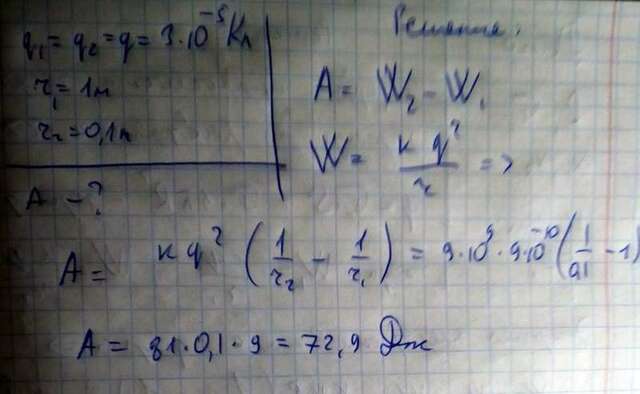 q₁ = q₂ = q = 3·10⁻⁵ Кл
r₁ = 1м
r₂ = 0,1м
A - ?
Решение:
A = W₂ - W₁
W = kq²/r =>
A = kq² (1/r₂ - 1/r₁) = 9·10⁹·9·10⁻¹⁰ (1/0,1 - 1)
A = 81·0,1·9 = 72,9 Дж